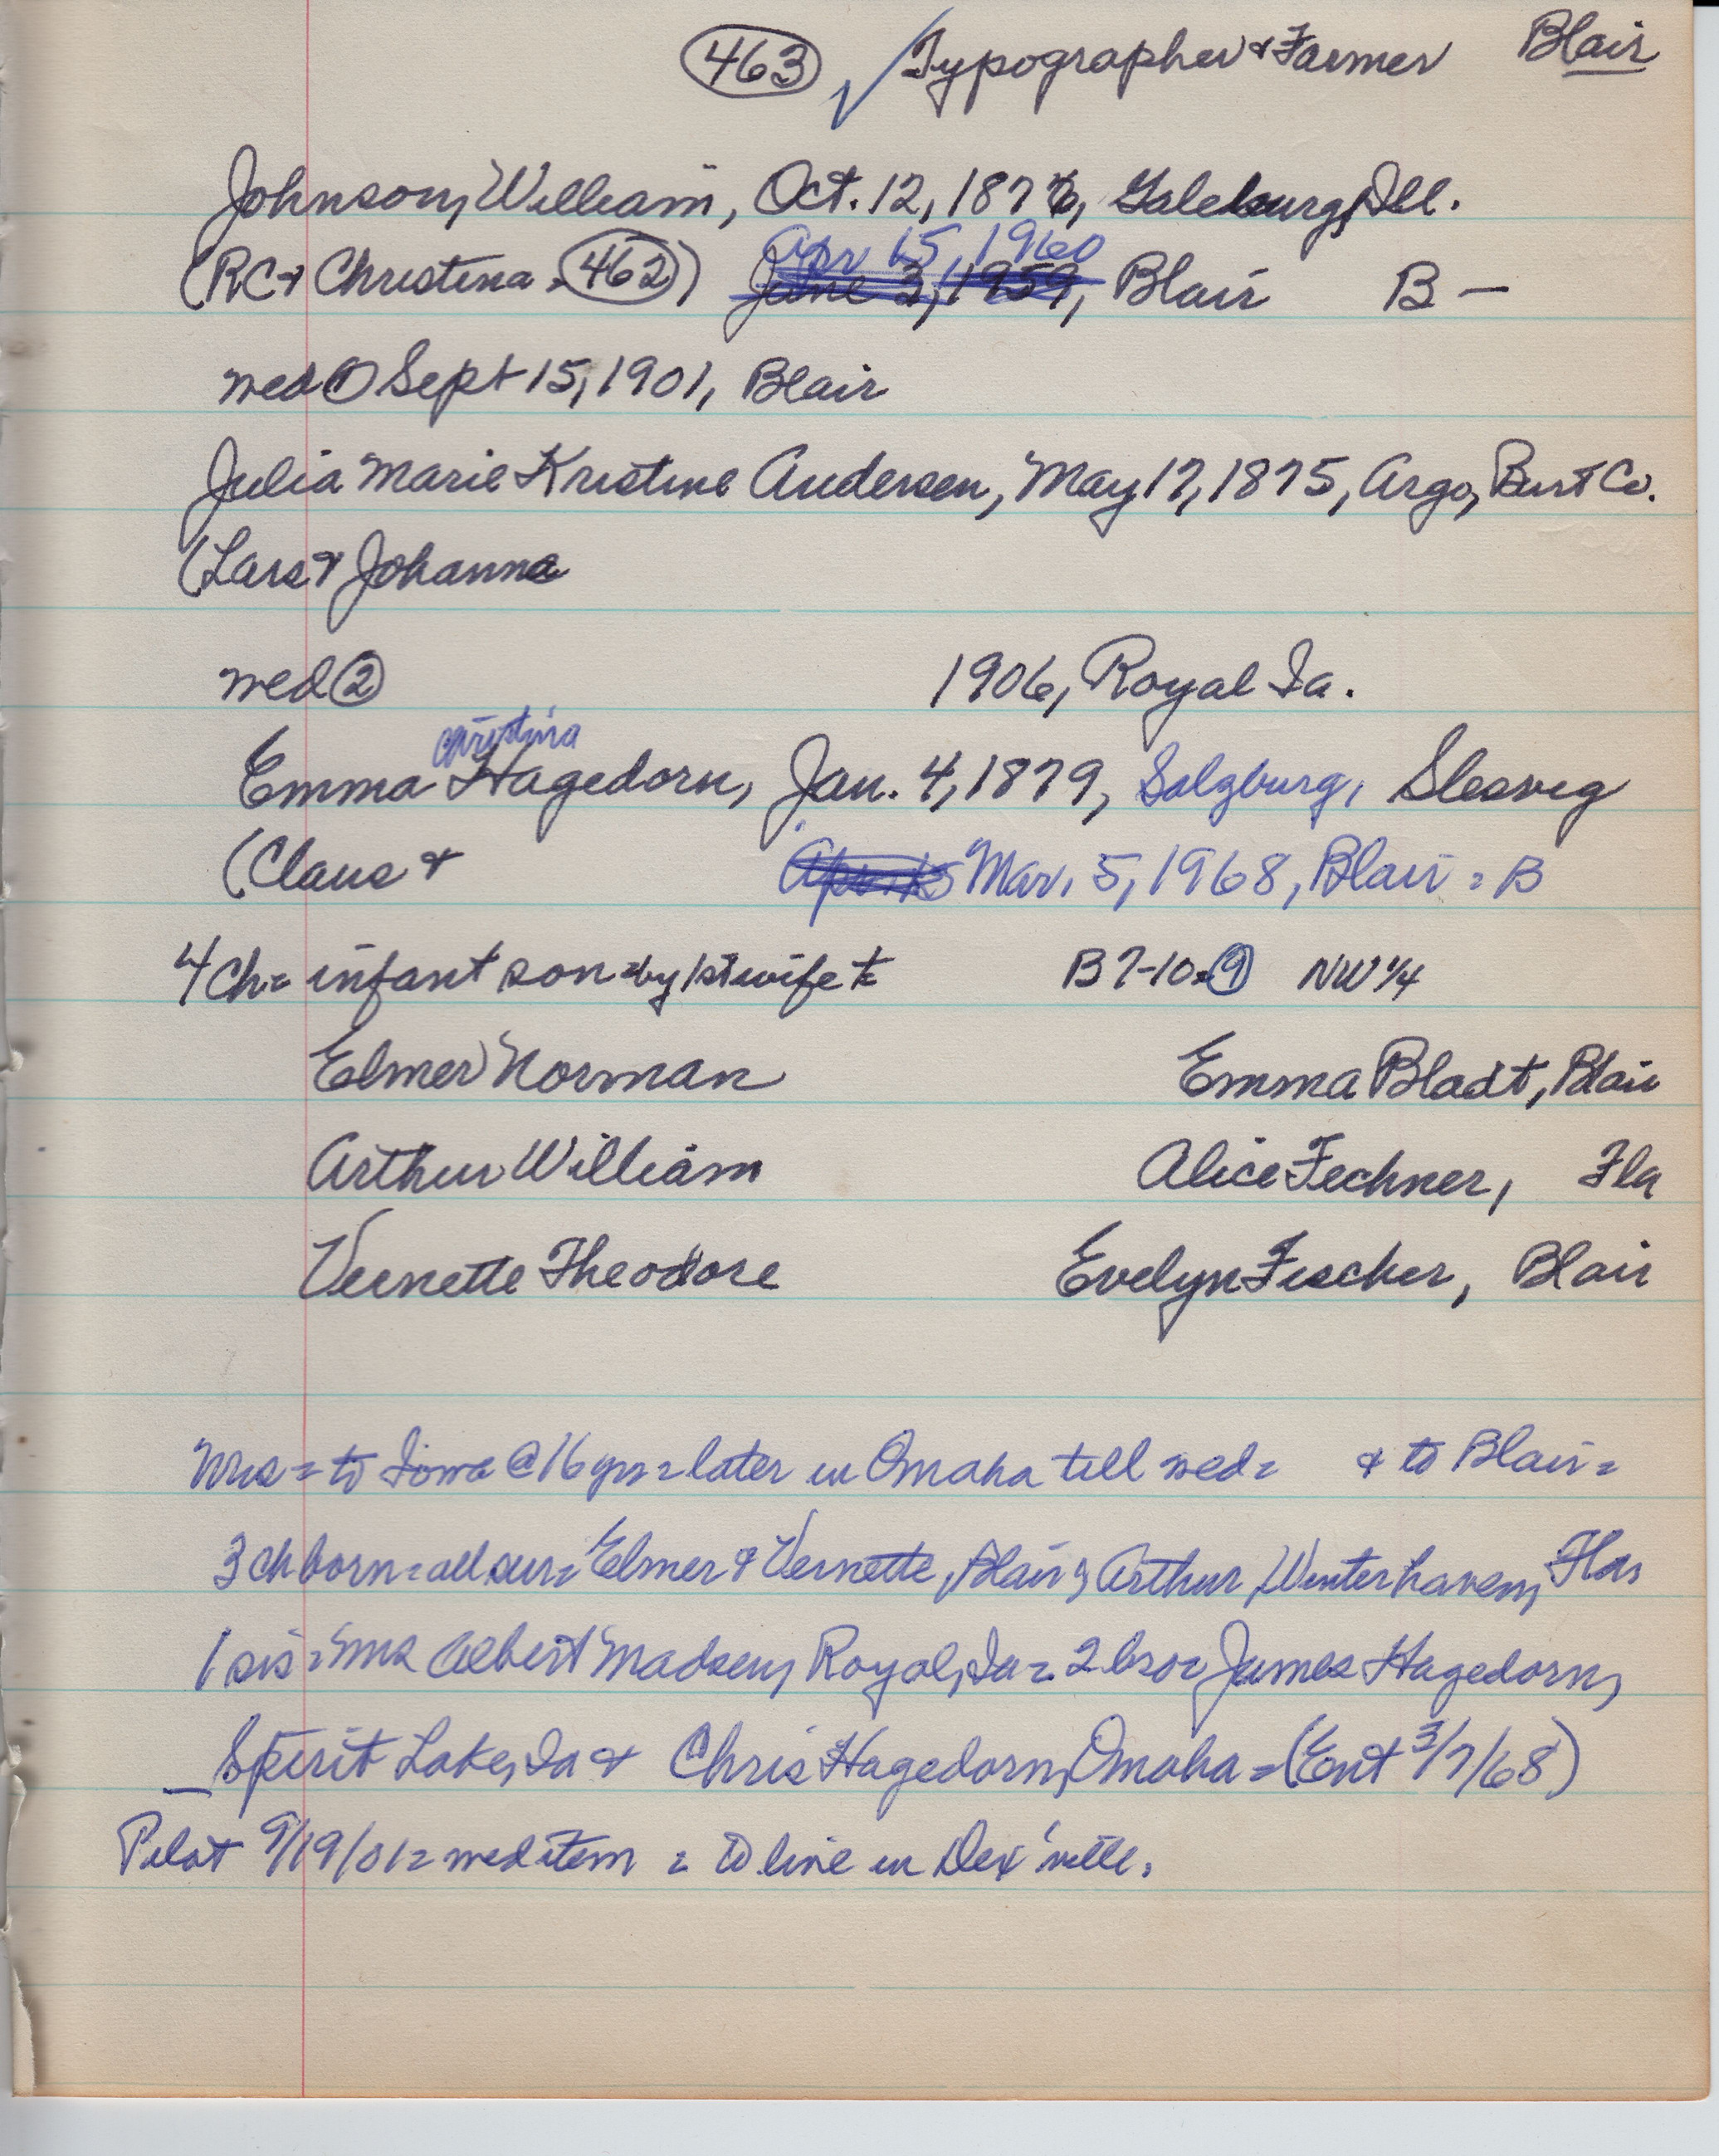 463 ✓ Typographer & Farmer Blair
Johnson, William, Oct. 12, 1876, Galesburg, Ill.
Apr 15, 1960
(RC & Christina = 462) June 3, 1959, Blair B —
wed ① Sept 15, 1901, Blair
Julia Marie Kristine Andersen, May 17, 1875, Argo, Burt Co.
(Lars & Johanna
wed ② 1906, Royal Ia.
Christina
Emma Hagedorn, Jan. 4, 1879, Salzburg, Slesvig
(Claus & Mar. 5, 1968, Blair = B
4 ch = infant son = by 1st wife t = B 7-10 = 9 NW 1/4
Elmer Norman Emma Bladt, Blair
Arthur William Alice Fechner, Fla
Vernette Theodore Evelyn Fischer, Blair
Mrs = to Iowa @ 16 yrs = later in Omaha till wed = & to Blair =
3 ch born = all sur = Elmer & Vernette, Blair, Arthur, Winterhaven, Fla
1 sis = Mrs Albert Madsen, Royal, Ia = 2 bro = James Hagedorn,
Spirit Lake, Ia & Chris Hagedorn, Omaha = (Ent 3/7/68)
Pilot 9/19/01 = wed item = to live in Dex'ville.